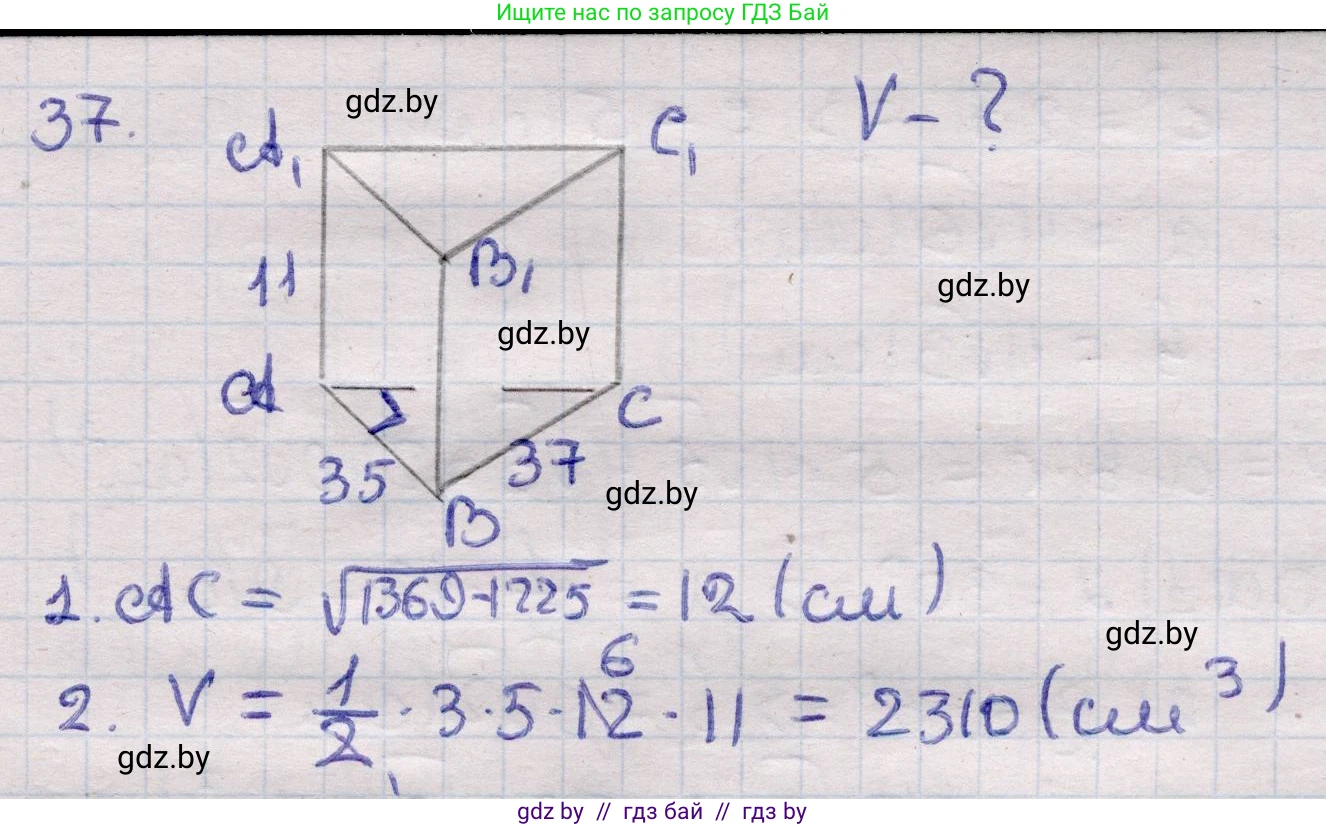 Ищите нас по запросу ГДЗ Бай
37.
gdz.by
V - ?
A₁
C₁
B₁
11
gdz.by
gdz.by
A
C
35
37
gdz.by
B
1. AC = √1369-1225 = 12 (см)
gdz.by
6
2. V = 1/2 · 3 · 5 · 12 · 11 = 2310 (см³)
1
gdz.by
gdz by // гдз бай // гдз by